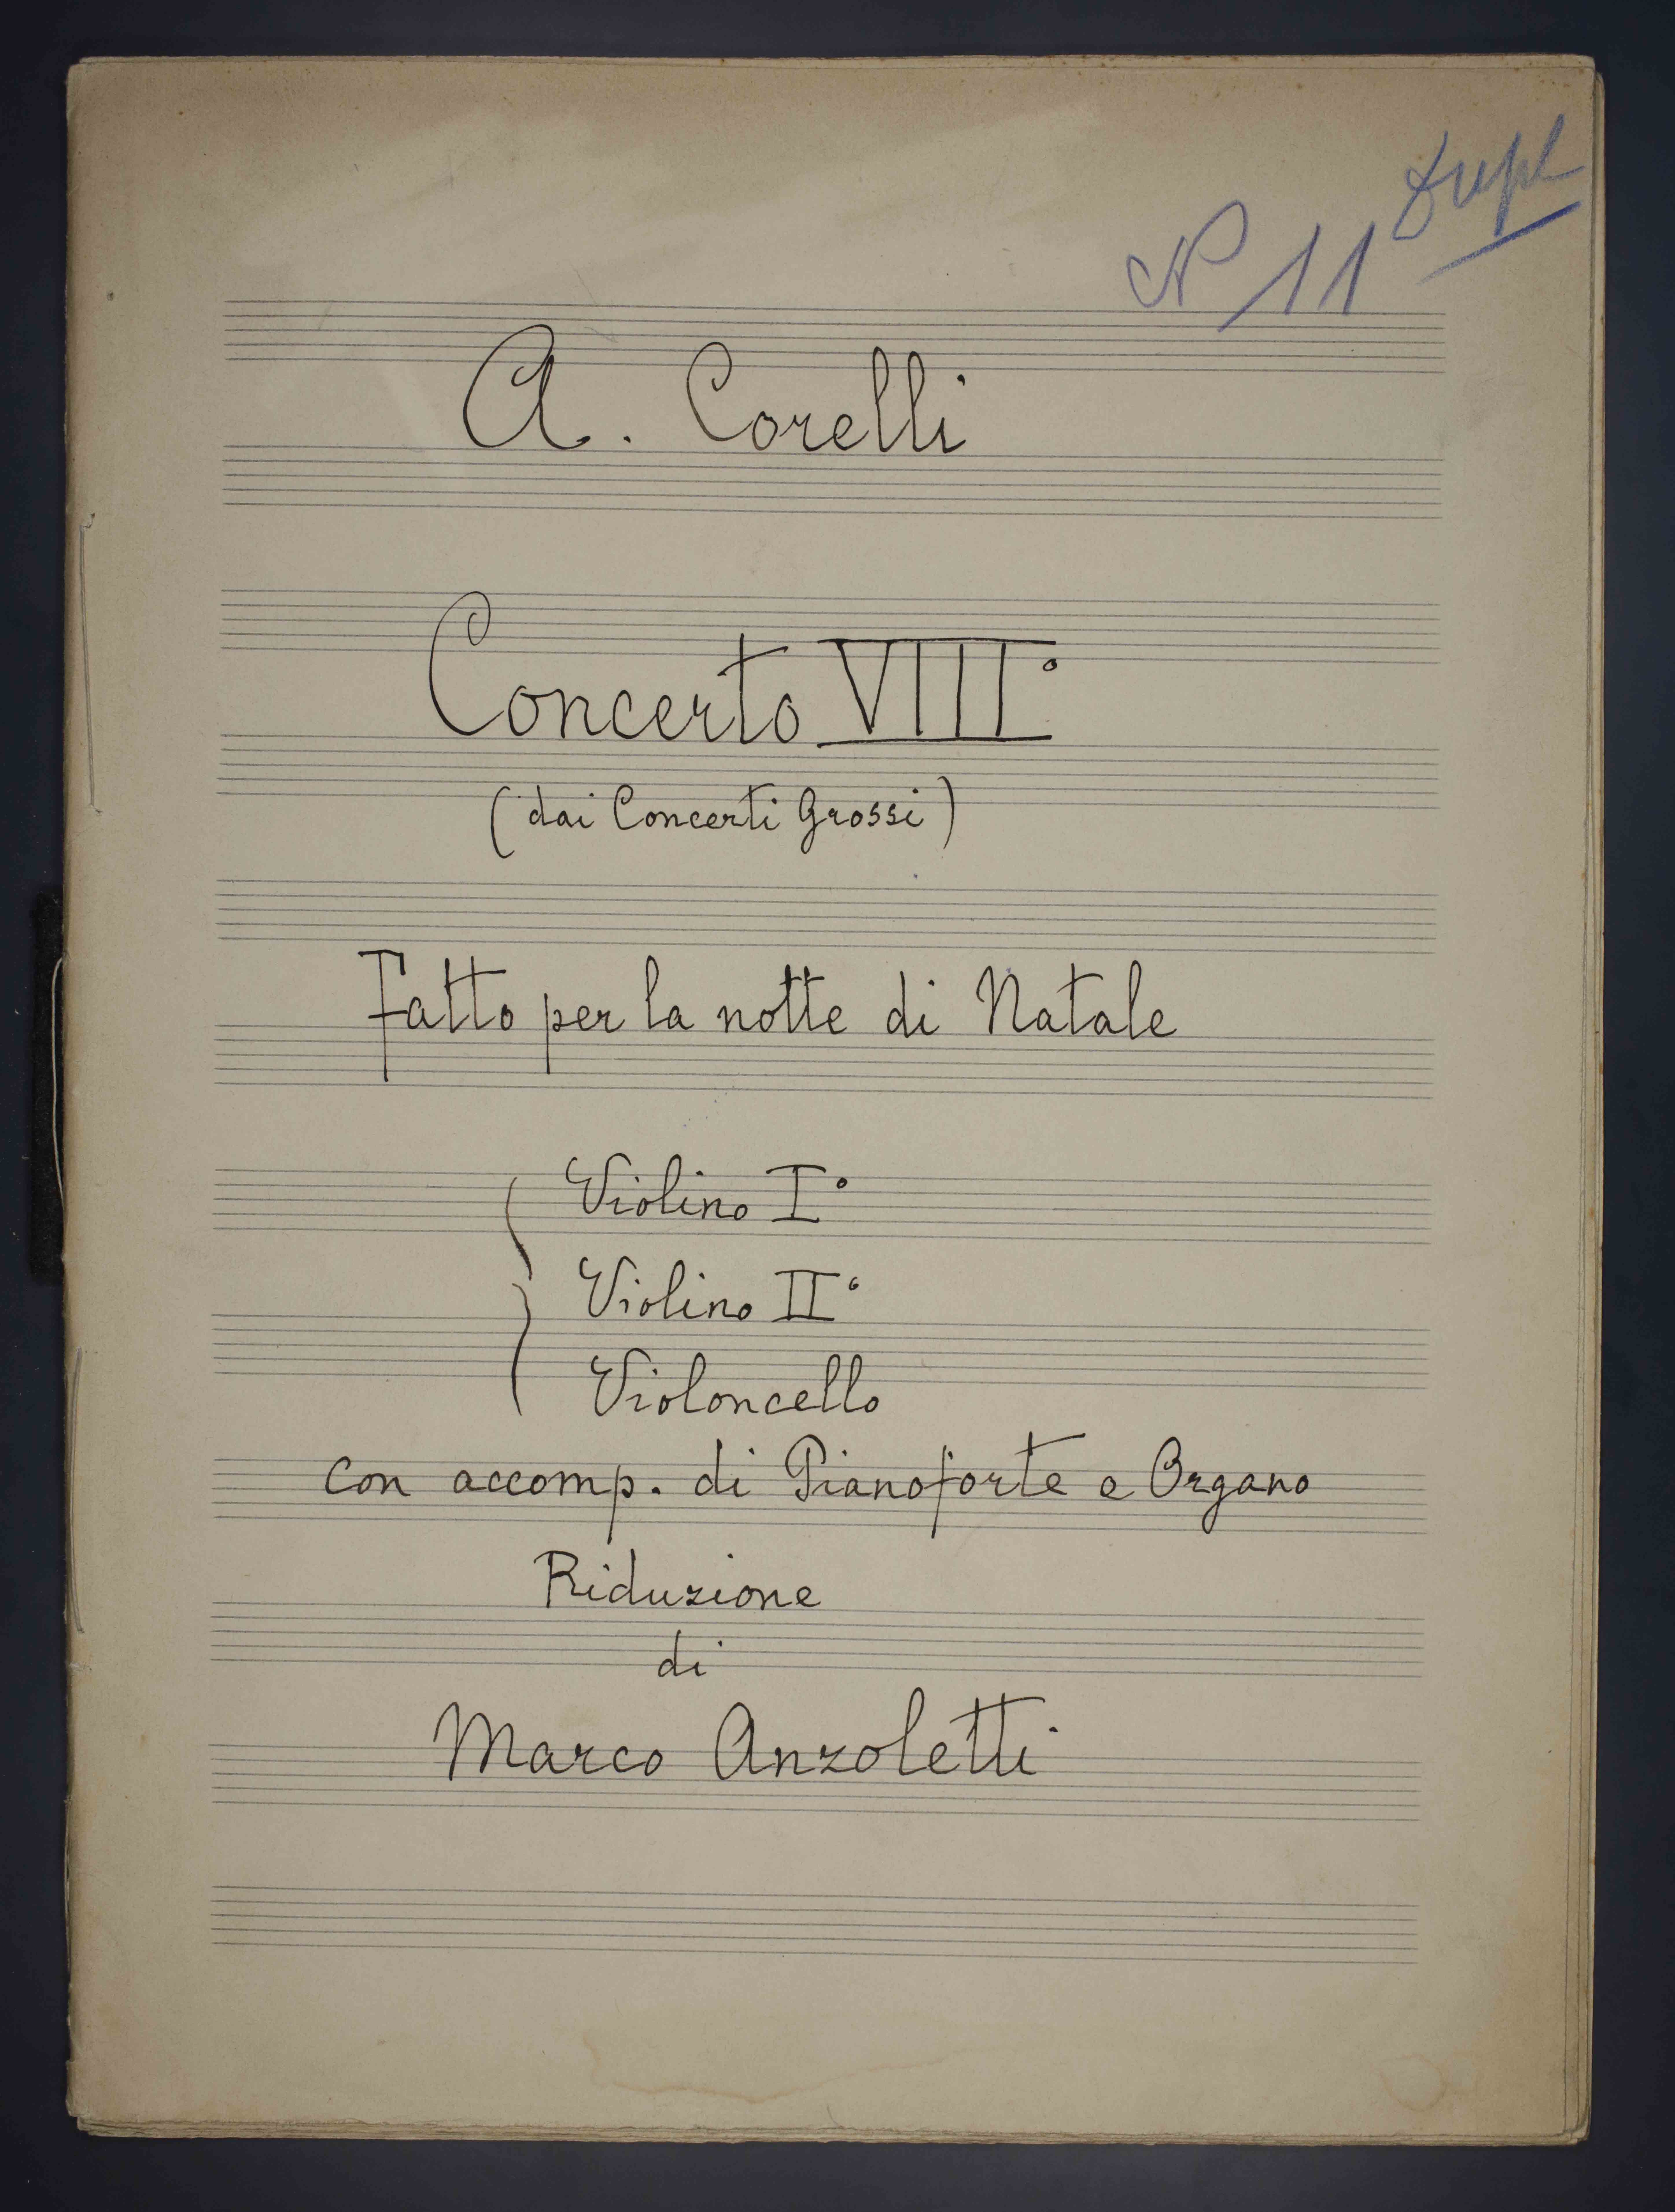 N 11 dupl
A. Corelli
Concerto VIII°
(dai Concerti Grossi)
Fatto per la notte di Natale
Violino I°
Violino II°
Violoncello
con accomp. di Pianoforte e Organo
Riduzione
di
Marco Anzoletti